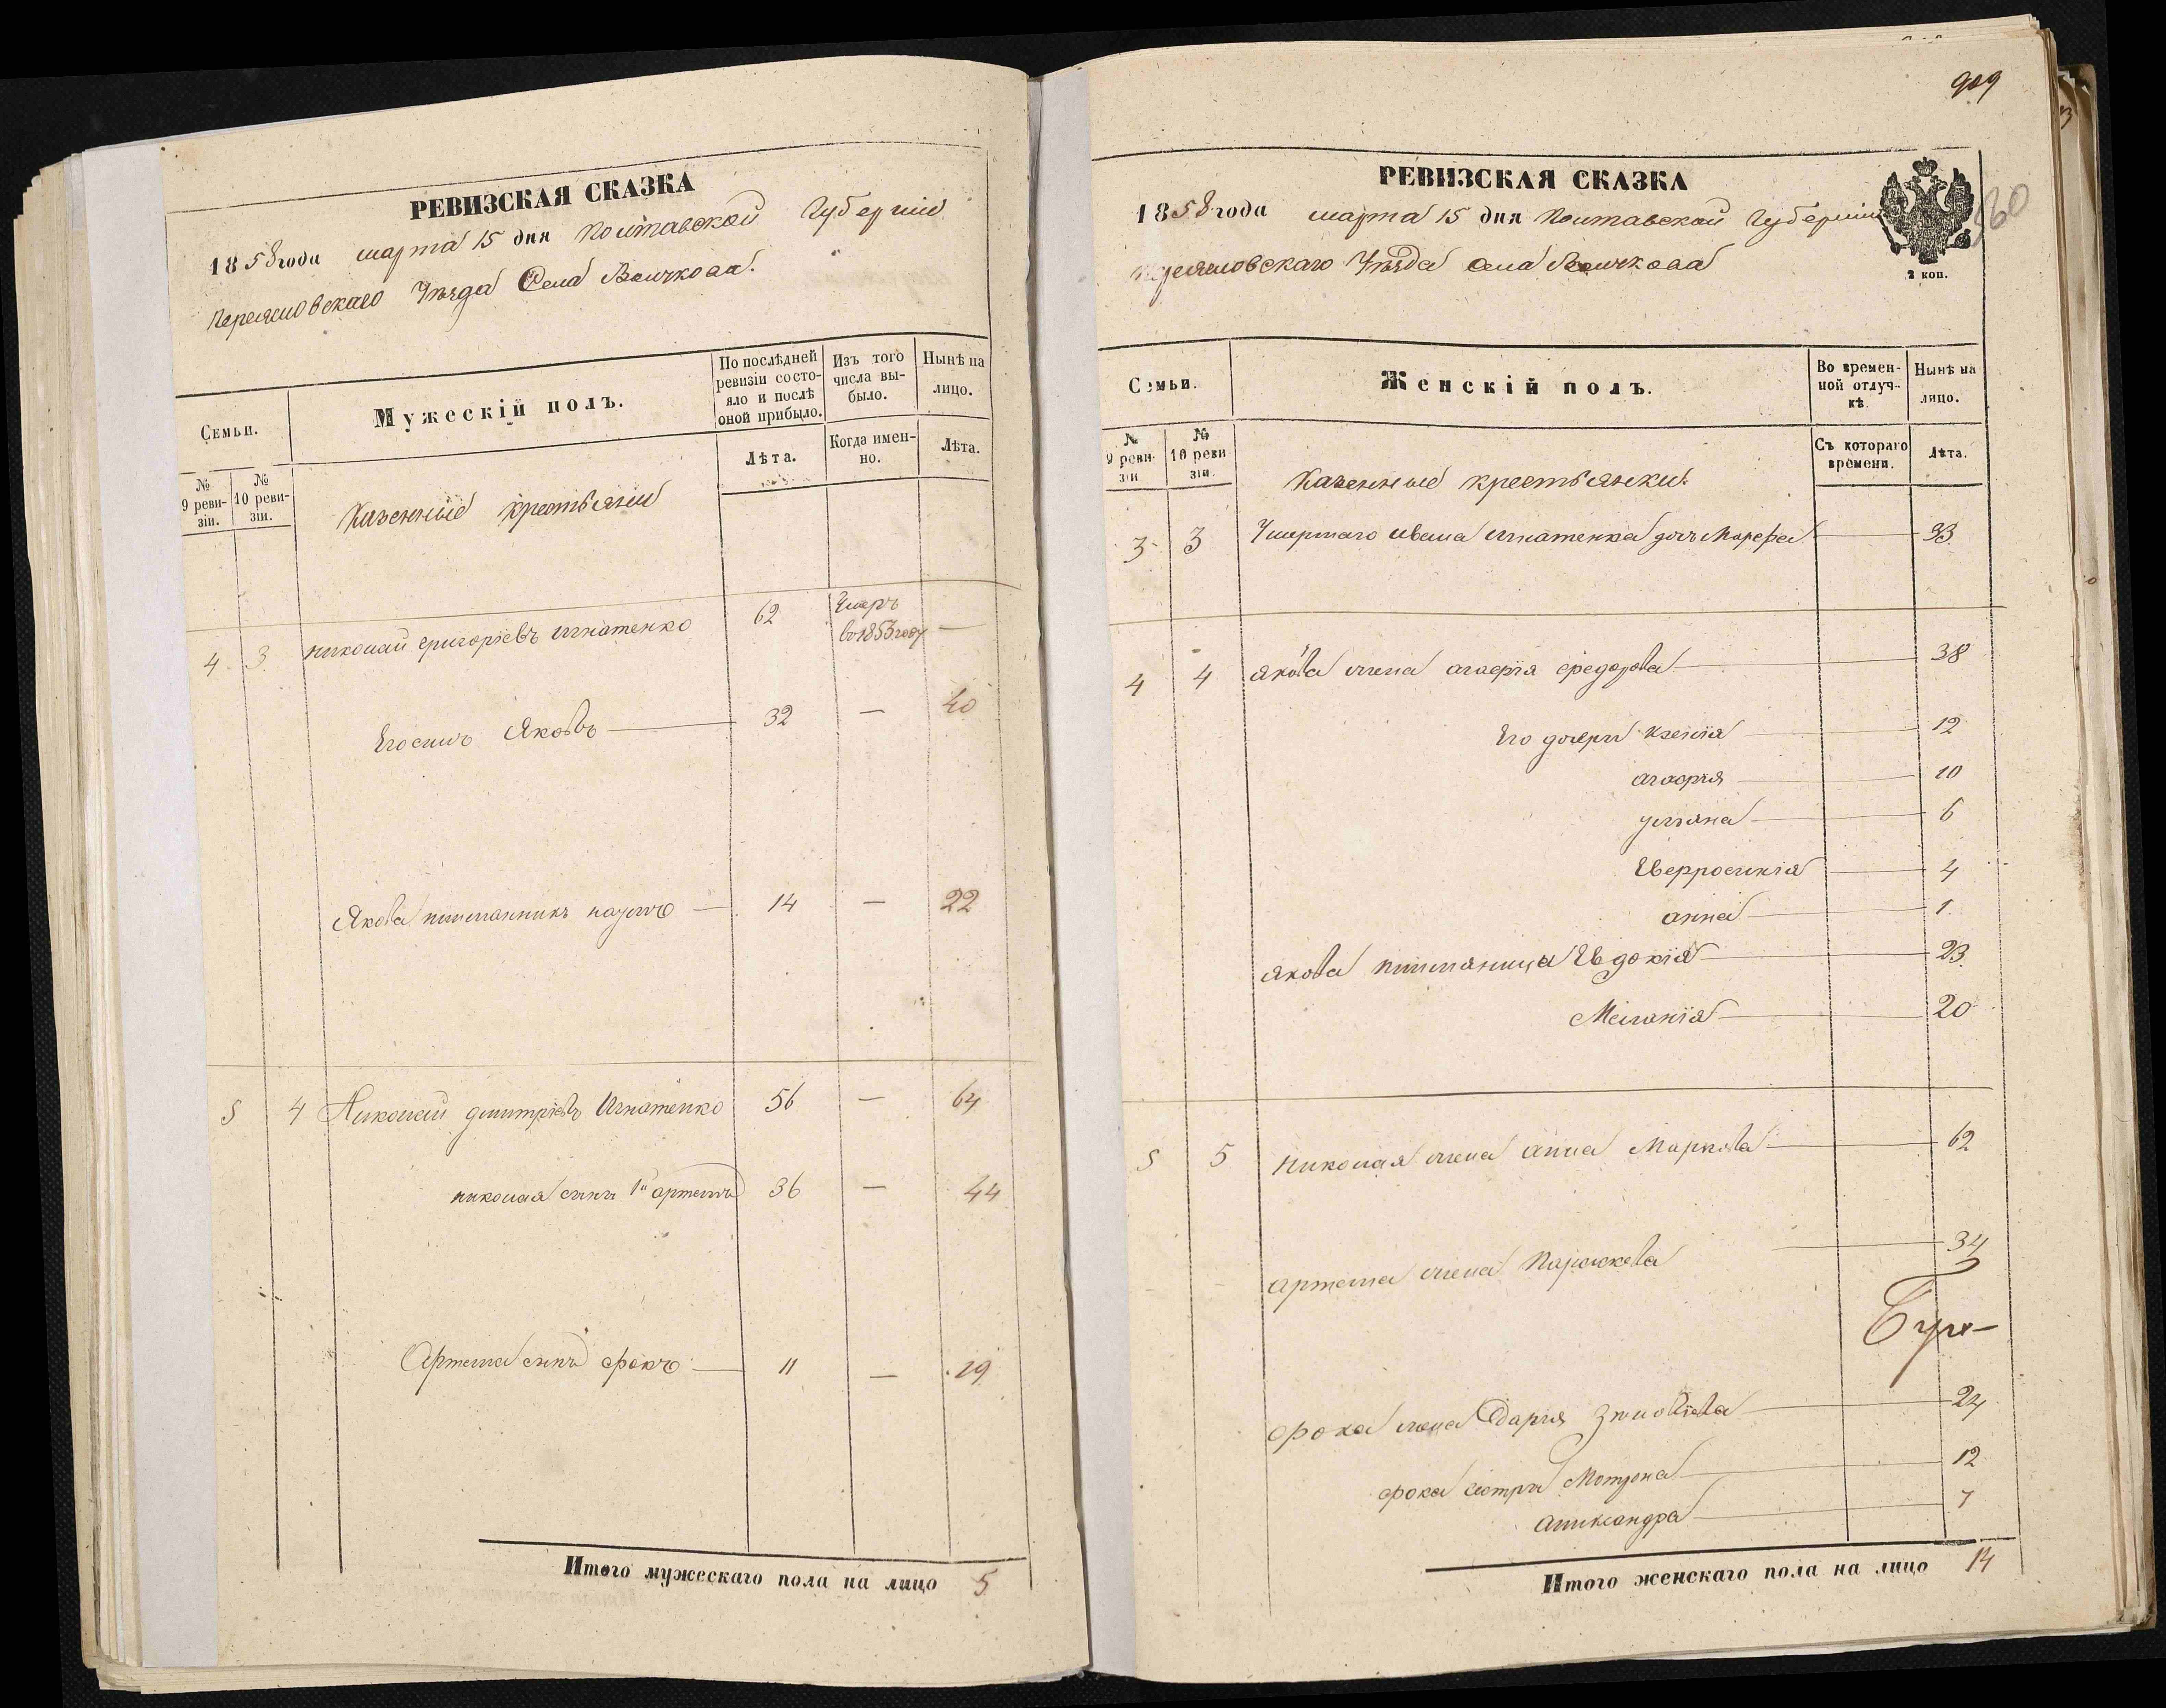 РЕВИЗСКАЯ СКАЗКА
1858 года марта 15 дня Полтавской Губернии
Переяславскаго Уѣзда Села Вьюнища
Семьи.
Мужескій полъ.
По послѣдней ревизіи состо-
яло и послѣ оной прибыло.
Изъ того числа вы-
было.
Нынѣ на лицо.
Лѣта.
Когда имен-
но.
Лѣта.
№ 9 реви-
зіи.
№ 10 реви-
зіи.
Казенные крестьяни
4 3 Николай Григоріевъ Игнатенко 62 Умеръ —
во 1853 году
Его сынъ Яковъ — 32 — 40
Якова племянникъ Наумъ — 14 — 22
5 4 Николай Дмитріевъ Игнатенко 56 — 64
Николая сынъ 1й Артемъ 36 — 44
Артема сынъ Фокъ — 11 — 19
Итого мужескаго пола на лицо 5
909
РЕВИЗСКАЯ СКАЗКА
2 коп.
1858 года марта 15 дня Полтавской Губерніи
Семьи.
Женскій полъ.
Во времен-
ной отлуч-
кѣ.
Нынѣ на лицо.
№ 9 реви-
зіи
№ 10 реви-
зіи.
Съ котораго времени.
Лѣта.
Казенные крестьянки.
3 3 Умершаго Ивана Игнатенка дочь Марефа — 33
4 4 Якова жена Агафія Федорова — 38
Его дочери Ксенія — 12
Агафія — 10
Ульяна — 6
Евфросинія — 4
Анна — 1
Якова племяница Евдокія — 23
Меланія — 20
5 5 Николая жена Анна Маркова — 62
Артема жена Парасковія — 34
Фока жена Дарья Зиновіева — 24
Фока сестры Мотрона — 12
Александра — 7
Итого женскаго пола на лицо 14